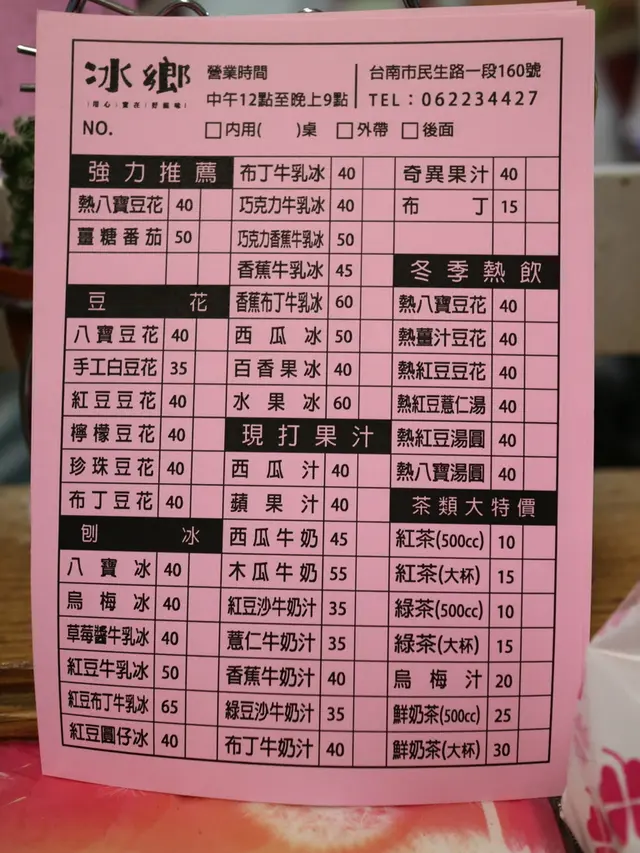 冰鄉
用心 實在 好滋味
營業時間
中午12點至晚上9點
台南市民生路一段160號
TEL：062234427
NO.
□內用(　)桌 □外帶 □後面
強力推薦
熱八寶豆花 40
薑糖番茄 50
豆花
八寶豆花 40
手工白豆花 35
紅豆豆花 40
檸檬豆花 40
珍珠豆花 40
布丁豆花 40
刨冰
八寶冰 40
烏梅冰 40
草莓醬牛乳冰 40
紅豆牛乳冰 50
紅豆布丁牛乳冰 65
紅豆圓仔冰 40
布丁牛乳冰 40
巧克力牛乳冰 40
巧克力香蕉牛乳冰 50
香蕉牛乳冰 45
香蕉布丁牛乳冰 60
西瓜冰 50
百香果冰 40
水果冰 60
現打果汁
西瓜汁 40
蘋果汁 40
西瓜牛奶 45
木瓜牛奶 55
紅豆沙牛奶汁 35
薏仁牛奶汁 35
香蕉牛奶汁 40
綠豆沙牛奶汁 35
布丁牛奶汁 40
奇異果汁 40
布丁 15
冬季熱飲
熱八寶豆花 40
熱薑汁豆花 40
熱紅豆豆花 40
熱紅豆薏仁湯 40
熱紅豆湯圓 40
熱八寶湯圓 40
茶類大特價
紅茶(500cc) 10
紅茶(大杯) 15
綠茶(500cc) 10
綠茶(大杯) 15
烏梅汁 20
鮮奶茶(500cc) 25
鮮奶茶(大杯) 30